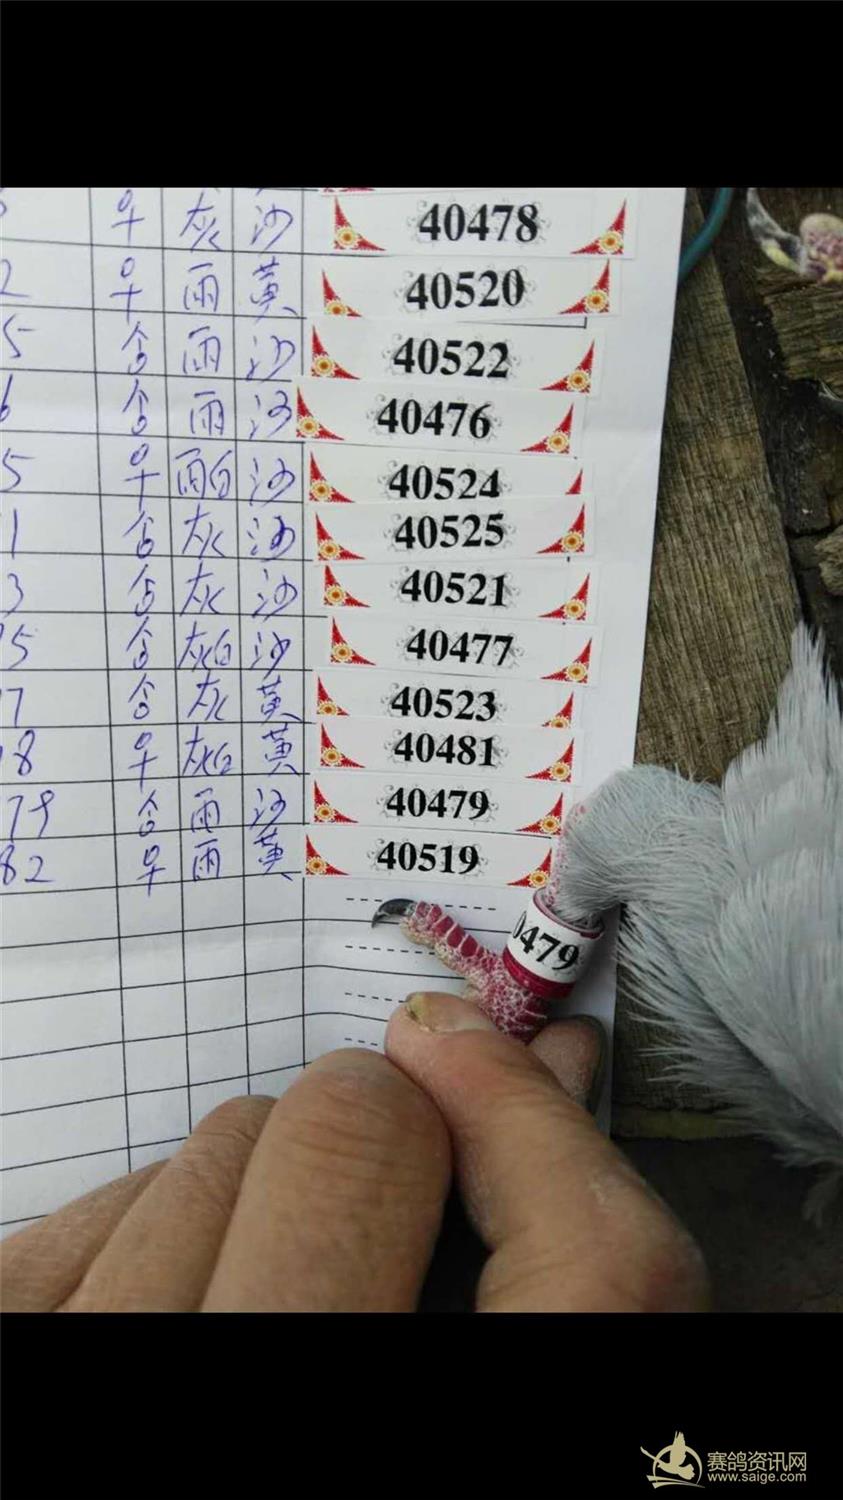 灰 沙 40478
2 雨 黄 40520
5 雨 沙 40522
6 雨 沙 40476
5 雨白 沙 40524
1 灰 沙 40525
3 灰 沙 40521
5 灰白 沙 40477
7 灰 黄 40523
8 灰白 黄 40481
79 雨 沙 40479
82 雨 黄 40519
0479
赛鸽资讯网
www.saige.com